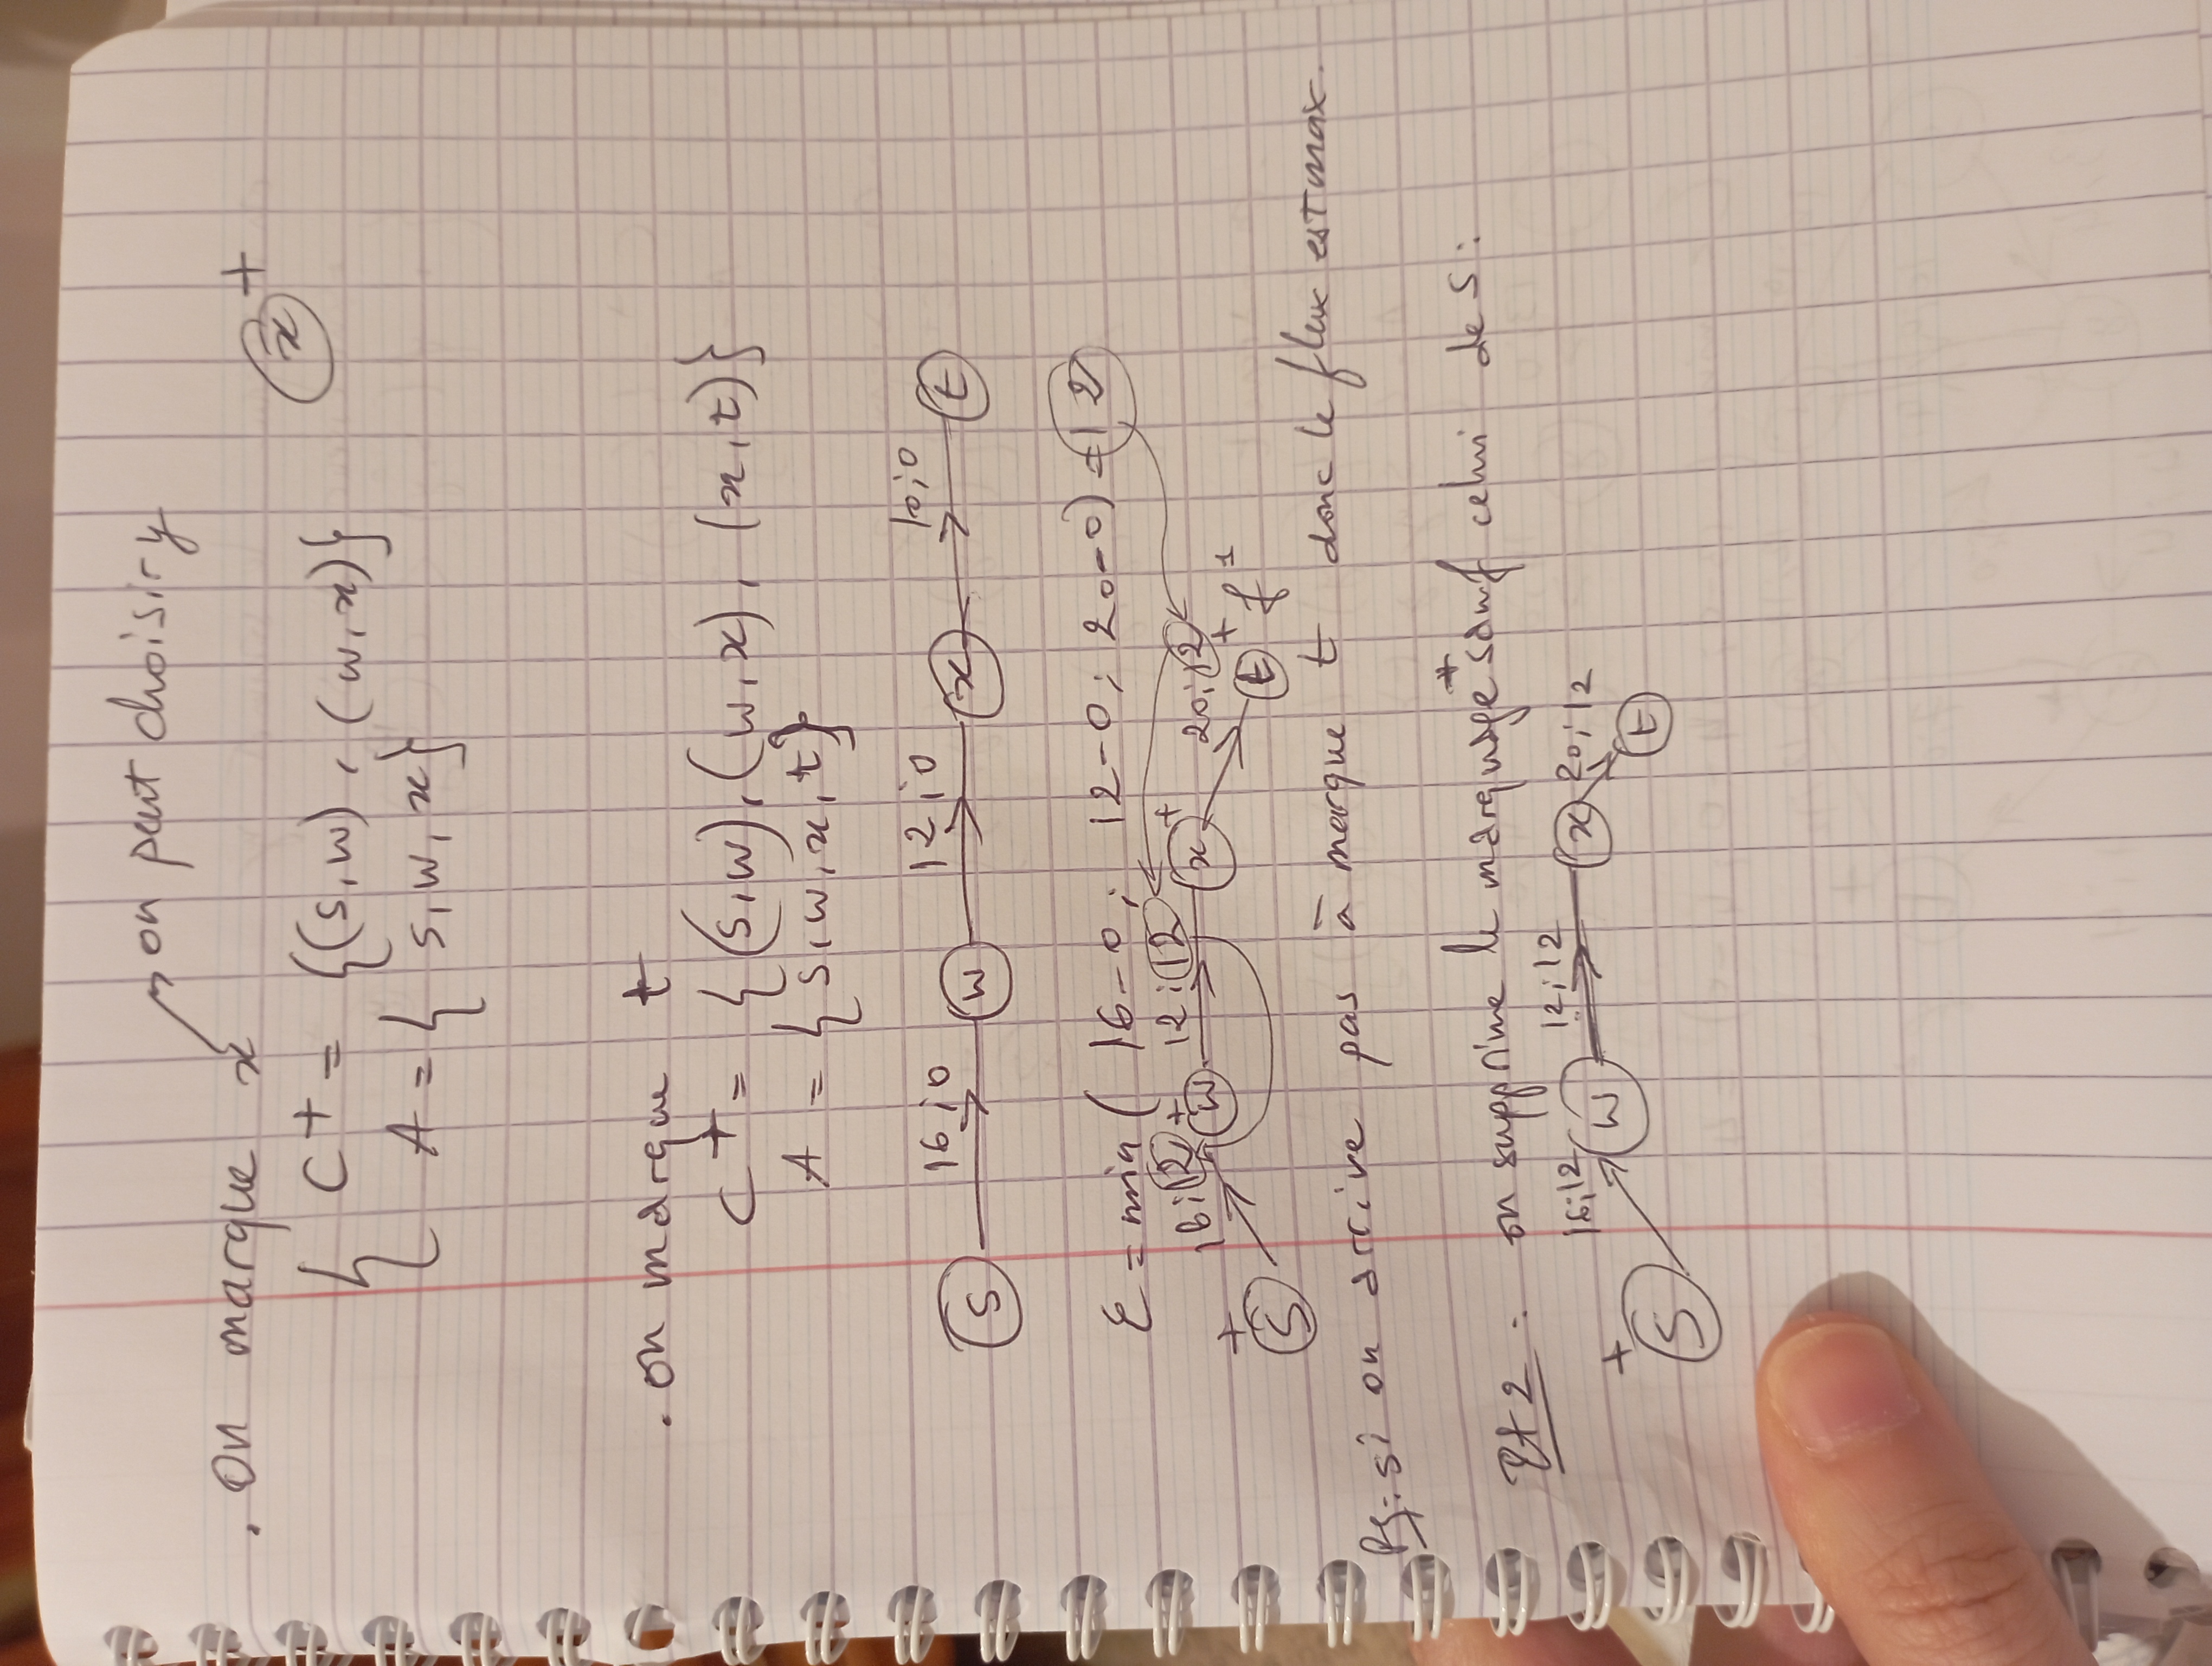 on peut choisir y
. on marque x
x +
C+ = {(s,w), (w,x)}
A = { s, w, x}
. on marque t
C+ = { (s,w), (w,x), (x,t)}
A = { s, w, x, t}
16;0 12;0 10;0
s w x t
ε = min ( 16-0; 12-0; 20-0) = 12
16;12 + 12;12 + 20;12
+ w x
s t + f1
Rq: si on arrive pas à marque t donc le flux est max.
Et 2 : on supprime le marquage + sauf celui de s :
16;12 12;12 20;12
+ w x
s t